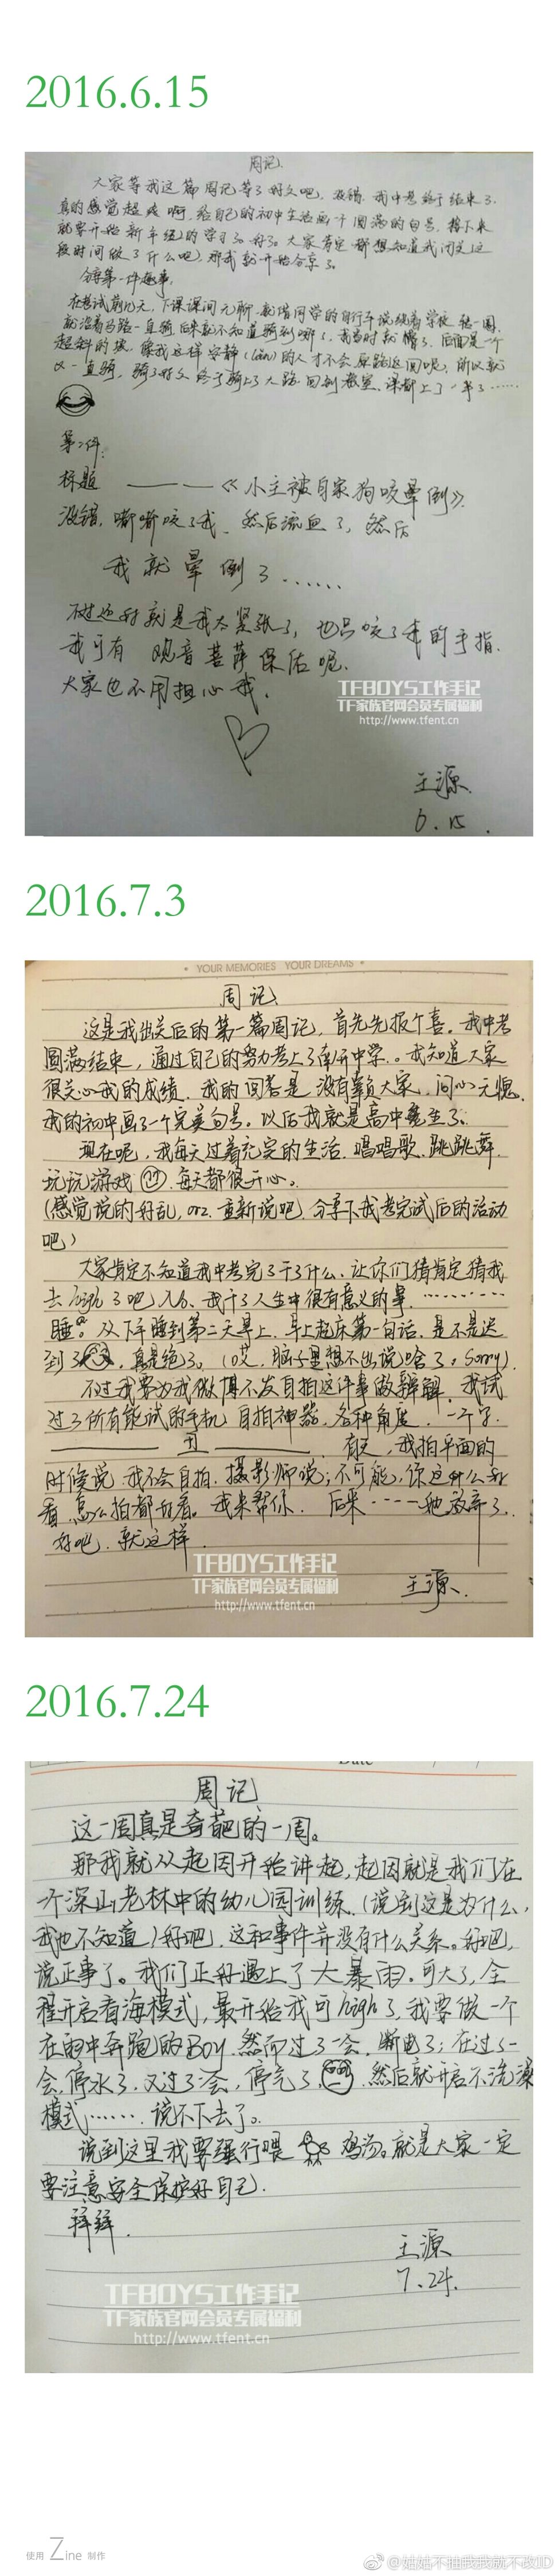 2016.6.15
周记
大家等我这篇周记等了好久吧，没错，我中考终于结束了.
真的感觉超爽啊，给自己的初中生活画一个圆满的句号，接下来
就要开始新年级的学习了。好了。大家肯定都想知道我闭关这
段时间做了什么吧，那我就开始分享了。
分享第一件趣事，
在考试前几天，下课课间无聊，就借同学的自行车说绕着学校骑一圈，
就沿着马路一直骑，后来就不知道骑到哪了，我当时就懵了，后面是一个
超斜的坡，像我这样安静(lǎn)的人才不会原路返回呢，所以就
又一直骑，骑了好久终于骑上了大路，回到教室，课都上了一半了……
第二件:
标题 ———《小主被自家狗咬晕倒》.
没错，嘟嘟咬了我、然后流血了，然后
我就晕倒了……
不过还好就是我太紧张了，也只咬了我的手指.
我可有 观音菩萨保佑呢.
大家也不用担心我.
TFBOYS工作手记
TF家族官网会员专属福利
http://www.tfent.cn
王源.
6.15.
2016.7.3
• YOUR MEMORIES YOUR DREAMS •
周记
这是我出关后的第一篇周记，首先先报个喜。我中考
圆满结束，通过自己的努力考上了南开中学。我知道大家
很关心我的成绩，我的回答是没有辜负大家，问心无愧.
我的初中画了一个完美句号。以后我就是高中学生了.
现在呢，我每天过着充实的生活，唱唱歌、跳跳舞
玩玩游戏，每天都很开心。
(感觉说的好乱，orz. 重新说吧，分享下我考完试后的活动
吧)
大家肯定不知道我中考完了干了什么、让你们猜肯定猜我
去high了吧，No、我干了人生中很有意义的事………
睡觉。从下午睡到第二天早上，早上起床第一句话，是不是迟
到了，真是绝了。(哎，脑子里想不出说啥了，Sorry).
不过我要为我微博不发自拍这件事做辩解，我试
过了所有能试的手机，自拍神器，各种角度，一个字.
——— 丑 ———. 有天，我拍平面的
时候说，我不会自拍，摄影师说；不可能，你这么好
看，怎么拍都好看。我来帮你. 后来····他放弃了.
好吧，就这样.
TFBOYS工作手记
TF家族官网会员专属福利
http://www.tfent.cn
王源.
2016.7.24
Date
周记
这一周真是奇葩的一周。
那我就从起因开始讲起，起因就是我们在
一个深山老林中的幼儿园训练.(说到这是为什么，
我也不知道)好吧，这和事件并没有什么关系。好吧，
说正事了。我们正好遇上了大暴雨。可大了，全
程开启看海模式，最开始我可high了，我要做一个
在雨中奔跑的Boy. 然而过了一会，断电了；在过了一
会，停水了. 又过了一会，停气了. 然后就开启不洗澡
模式……. 说不下去了。
说到这里我要强行喂 鸡汤。就是大家一定
要注意安全保护好自己.
拜拜.
王源
7.24.
TFBOYS工作手记
TF家族官网会员专属福利
http://www.tfent.cn
使用 Zine 制作